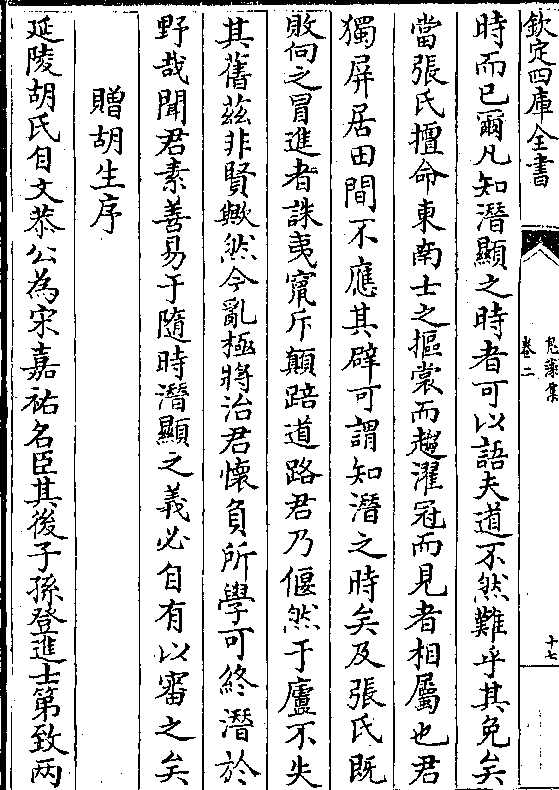 欽定四庫全書
鳧藻集
卷二
十七
時而已爾凡知潛顯之時者可以語夫道不然難乎其免矣
當張氏擅命東南士之摳裳而趨濯冠而見者相屬也君
獨屏居田間不應其辟可謂知潛之時矣及張氏既
敗向之冒進者誅夷竄斥顛踣道路君乃偃然于廬不失
其舊茲非賢歟然今亂極將治君懷負所學可終潛於
野哉聞君素善易于隨時潛顯之義必自有以審之矣
贈胡生序
延陵胡氏自文恭公為宋嘉祐名臣其後子孫登進士第致两